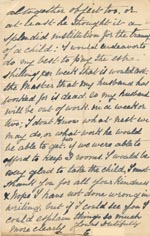 altogether object too. or
at least he thought it a
splendid institution for the training
of a child. I would endeavour to
do my best to pay the extra
shillings per week that is needed.
the Master that my husband has
worked for is dead so my husband
will be out of work in a week or
two, I dont know what next we
may do, or what work he would
be able to get. if we were able to
afford to keep 2 rooms I would be
very glad to take the child, I must
thank you for all your kindness
& hope I have not done wrong in
writing, but if I could see you I
could explain things so much
more clearly. yours faithfully